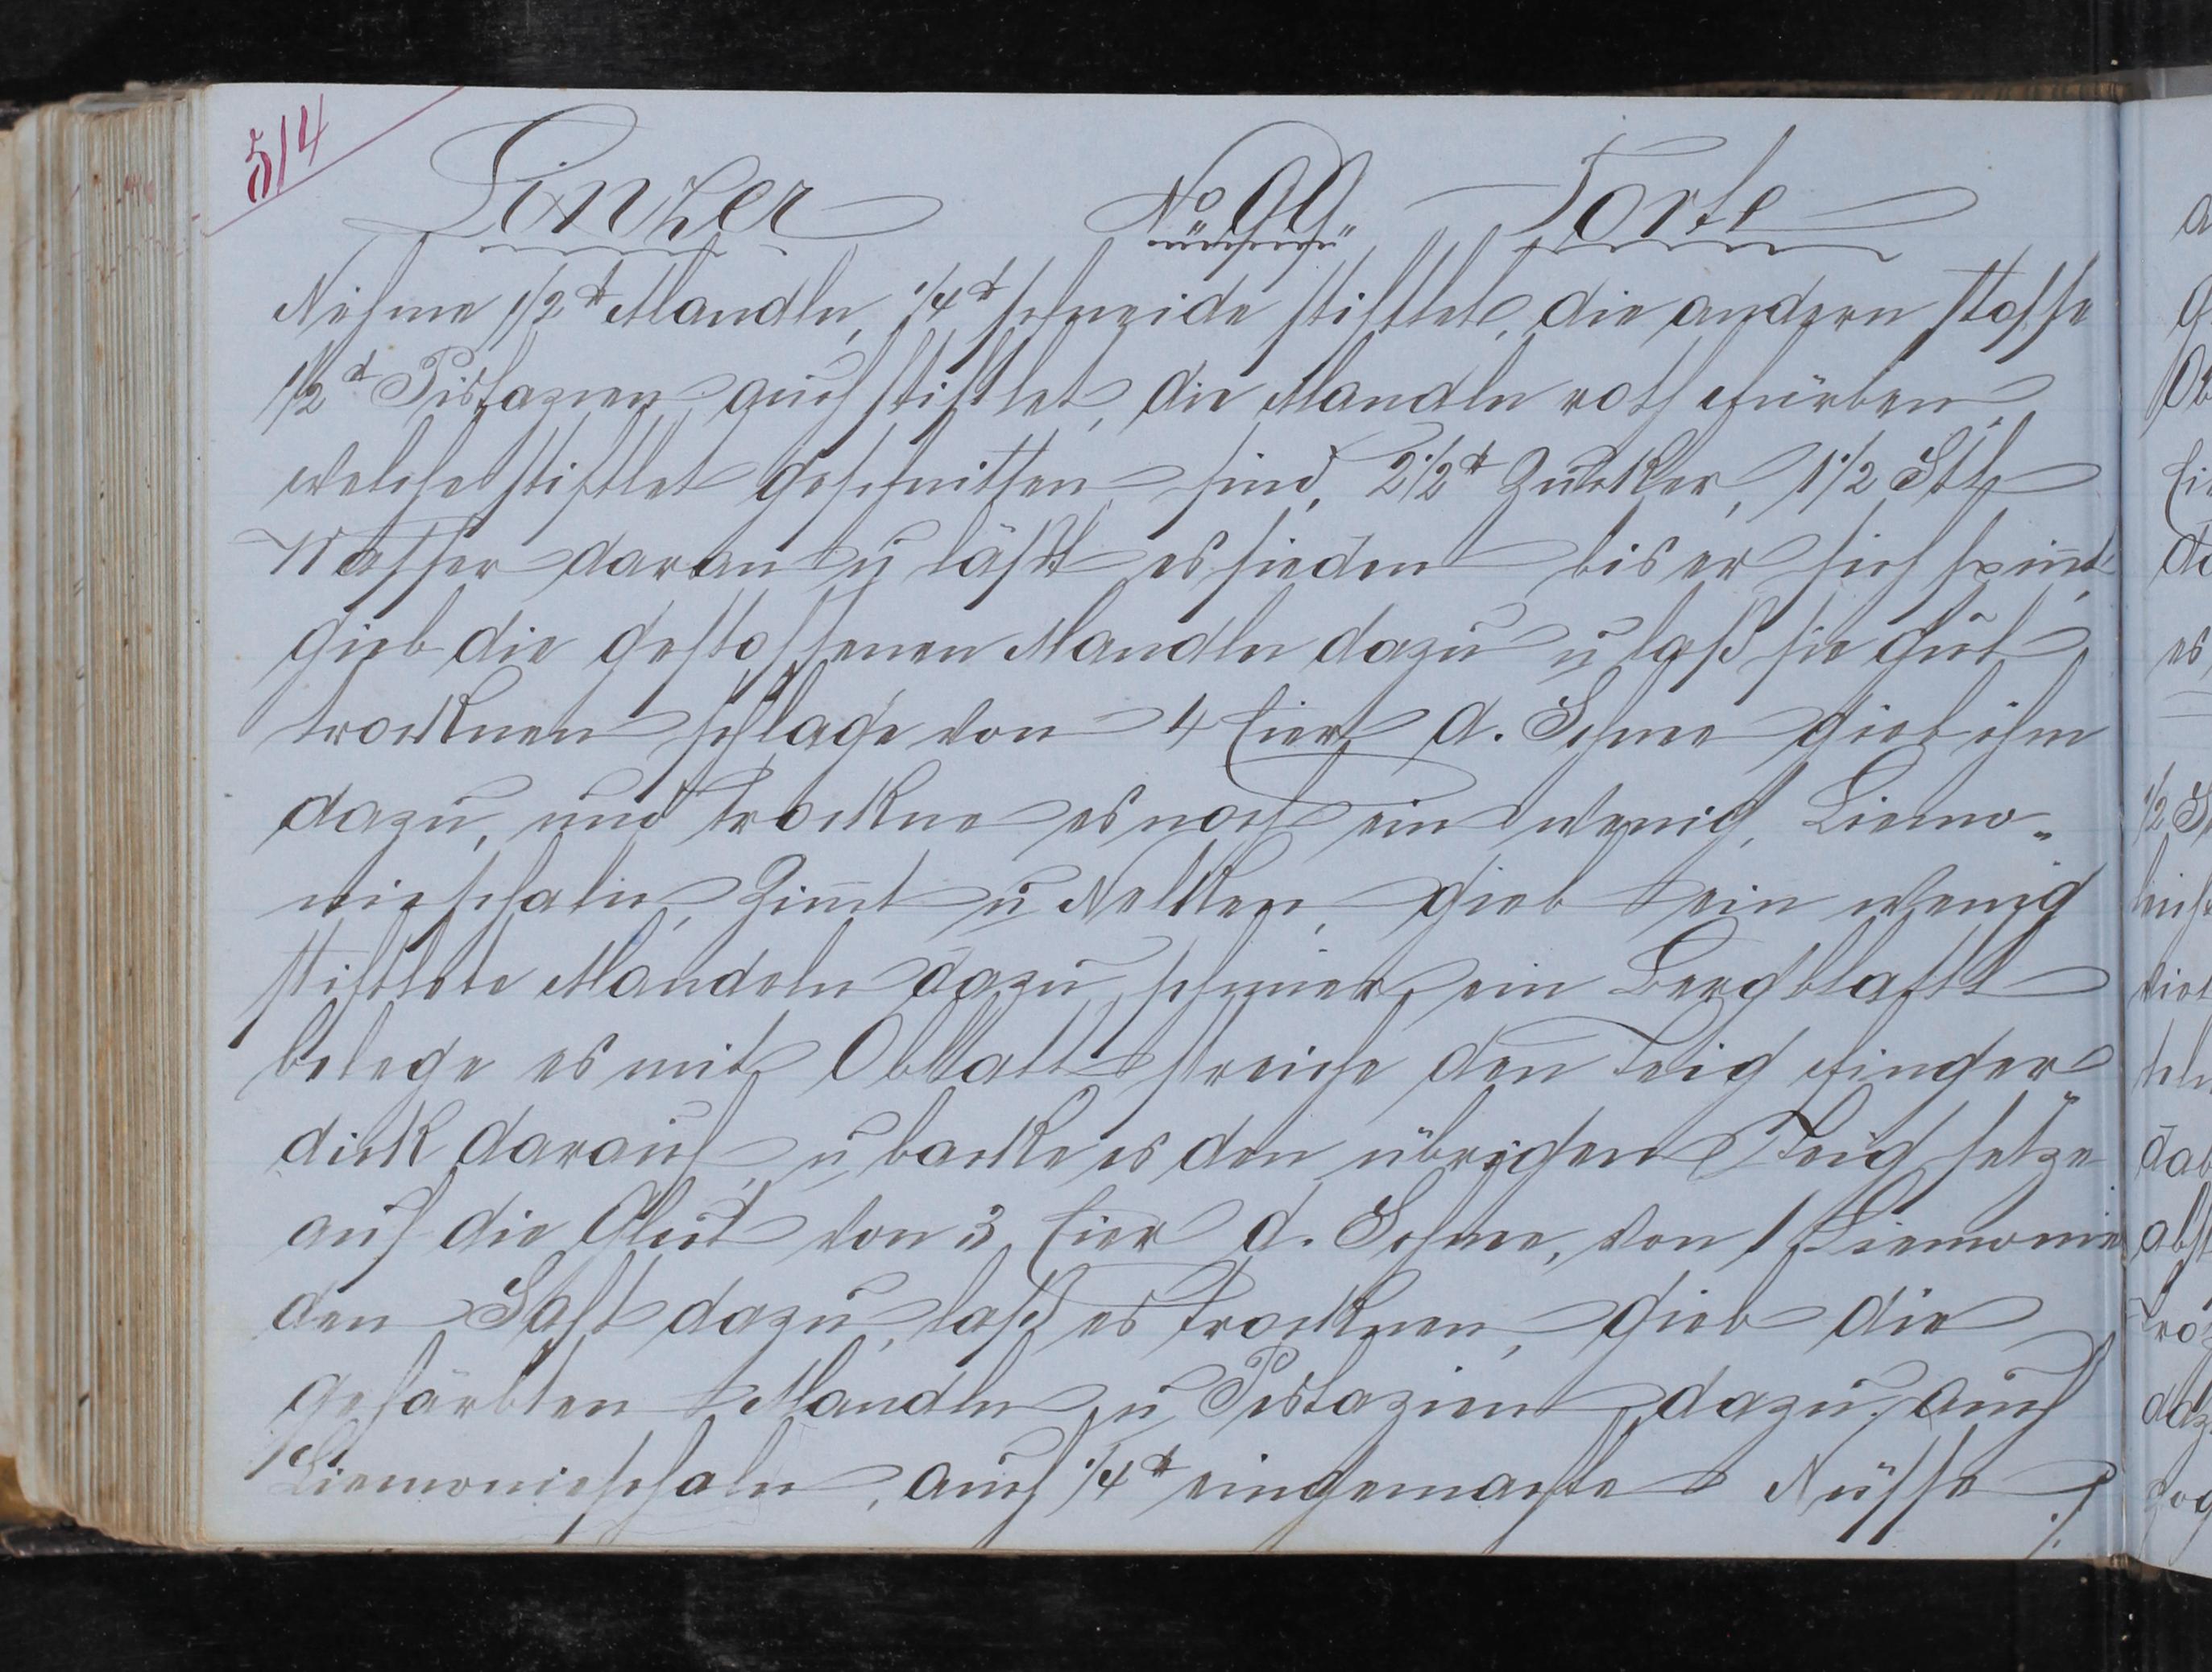 514
Linzer No 99 Torte
Nehme 1/2 ℔ Mandln, 1/4 ℔ schneide stiftlet, die andern stosse
1/2 ℔ Pistazien auch stiftlet, die Mandln roth färben,
welche stiftlet geschnitten sind, 2 1/2 ℔ Zucker, 1 1/2 Stl
Wasser daran u läßt es sieden bis er sich spinnt,
gieb die gestossenen Mandln dazu u laß sie gut
trocknen schlage von 4 Eier d. Schnee gieb ihm
dazu, und trockne es noch ein wenig, Liemo-
nieschaln, Zimt u Nelken, gieb ein wenig
stiftlete Mandeln dazu, schmier ein Bergblatt
belege es mit Oblatt streiche den Teig finger-
dick darauf, u backe es den übrigen Teig setze
auf die Glut von 3 Eier d. Schnee, von 1 Liemonie
den Saft dazu, laß es trocknen, gieb die
gefärbten Mandln u Pistazien dazu, auch
Liemonieschaln, auch 1/4 ℔ eingemachte Nüsse ./.